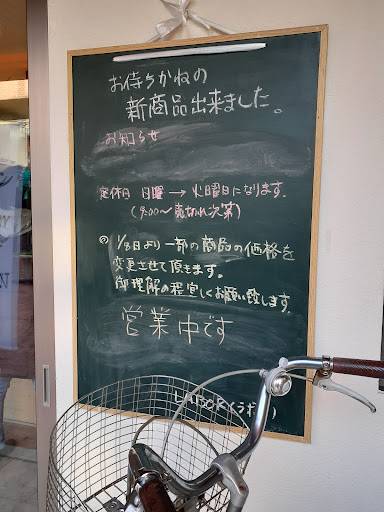 お待ちかねの
新商品出来ました。
お知らせ
定休日 日曜 → 火曜日になります。
(9:00〜売切れ次第)
1/8日より一部の商品の価格を
変更させて頂きます。
御理解の程宜しくお願い致します。
営業中です